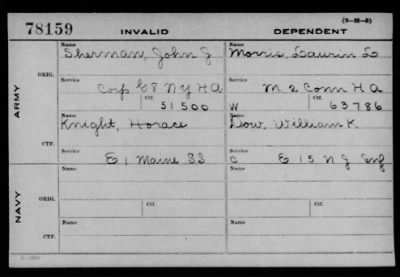 (3-H-2)
78159 INVALID DEPENDENT
Name Name
Sherman, John J Morris, Laurin L
ORIG. Service Service
Corp G 8 N Y H A M 2 Conn H A
Ctf. Ctf.
51500 W 63786
ARMY
Name Name
Knight, Horace Dow, William K.
CTF. Service Service
E 1 Maine SS C E 15 N J Inf
NAVY
Name Name
ORIG. Service Ctf. Service Ctf.
Name Name
CTF. Service Service